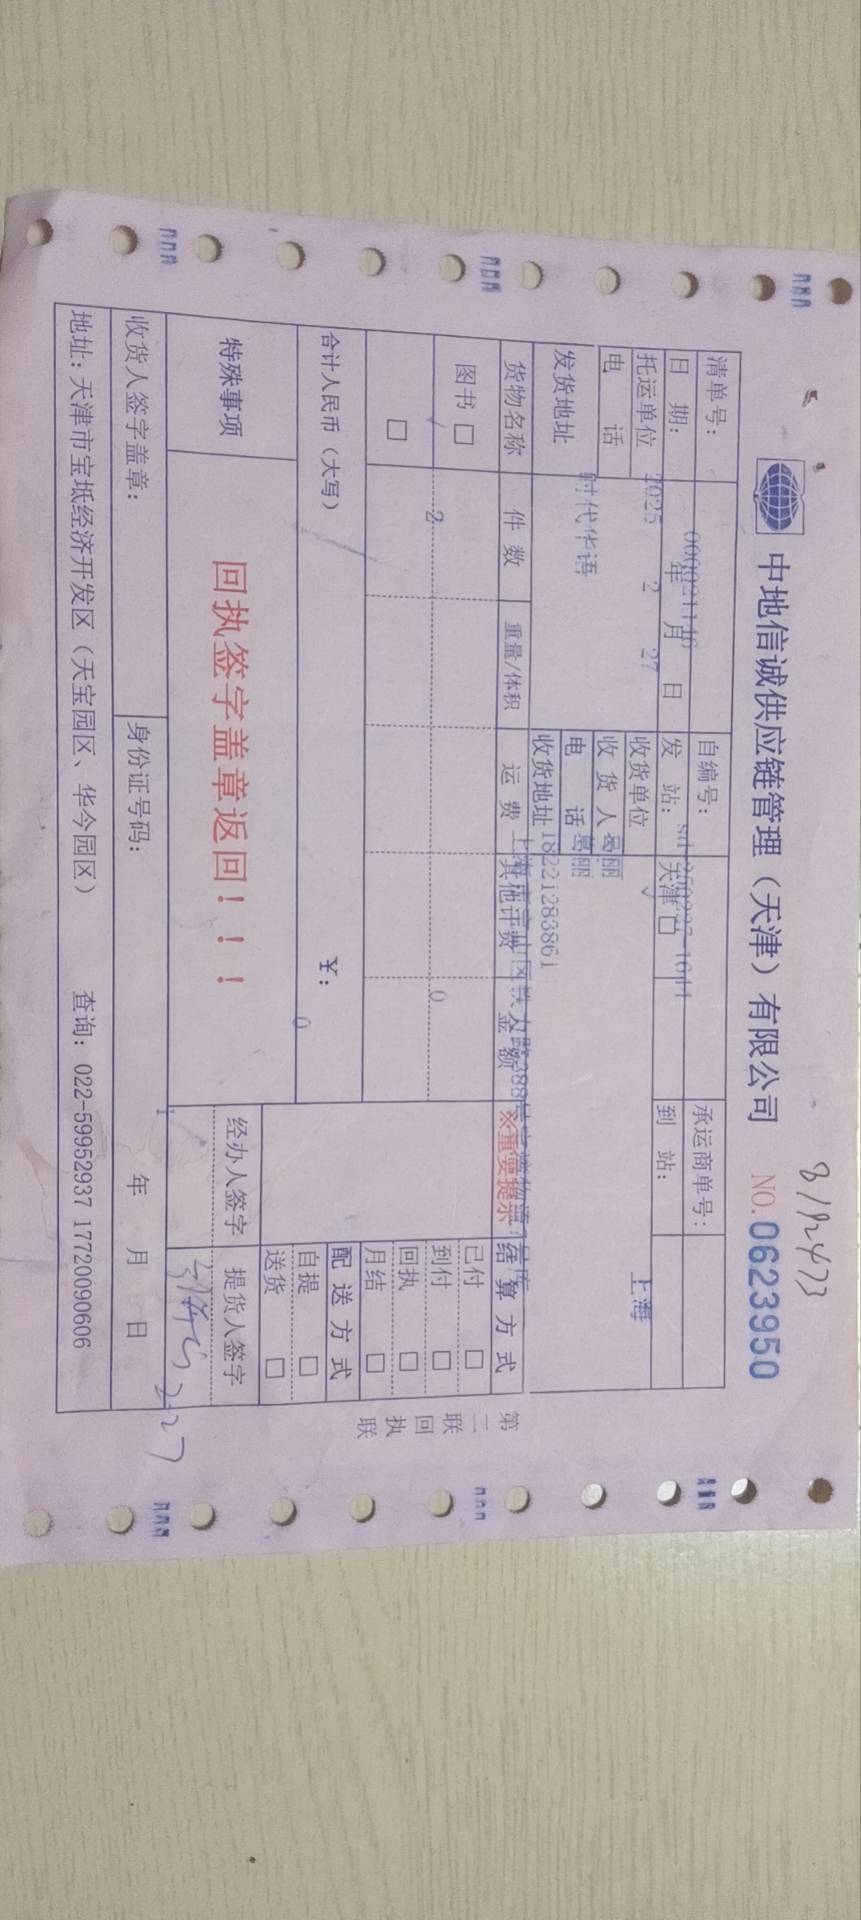 8192473
中地信诚供应链管理（天津）有限公司 NO. 0623950
清单号： 0000021146 自编号： 承运商单号：
日 期： 年 月 日 发 站： 天津 □ 到 站：
2025 2 27 上海
托运单位 收货单位
电 话 收 货 人 葛丽
时代华语 电 话 葛丽
发货地址 收货地址 18221283861
货物名称 件 数 重量/体积 运 费 其他计费 金 额 ※重要提示 结 算 方 式
图书 □ 2 0 已付 □
到付 □
□ 回执 □
月结 □
合计人民币（大写） ￥： 0 配 送 方 式
自提 □
送货 □
特殊事项 回执签字盖章返回！！！ 经办人签字 提货人签字
2.27
收货人签字盖章： 身份证号码： 年 月 日
地址：天津市宝坻经济开发区（天宝园区、华今园区） 查询：022-59952937 17720090606
第二联回执联